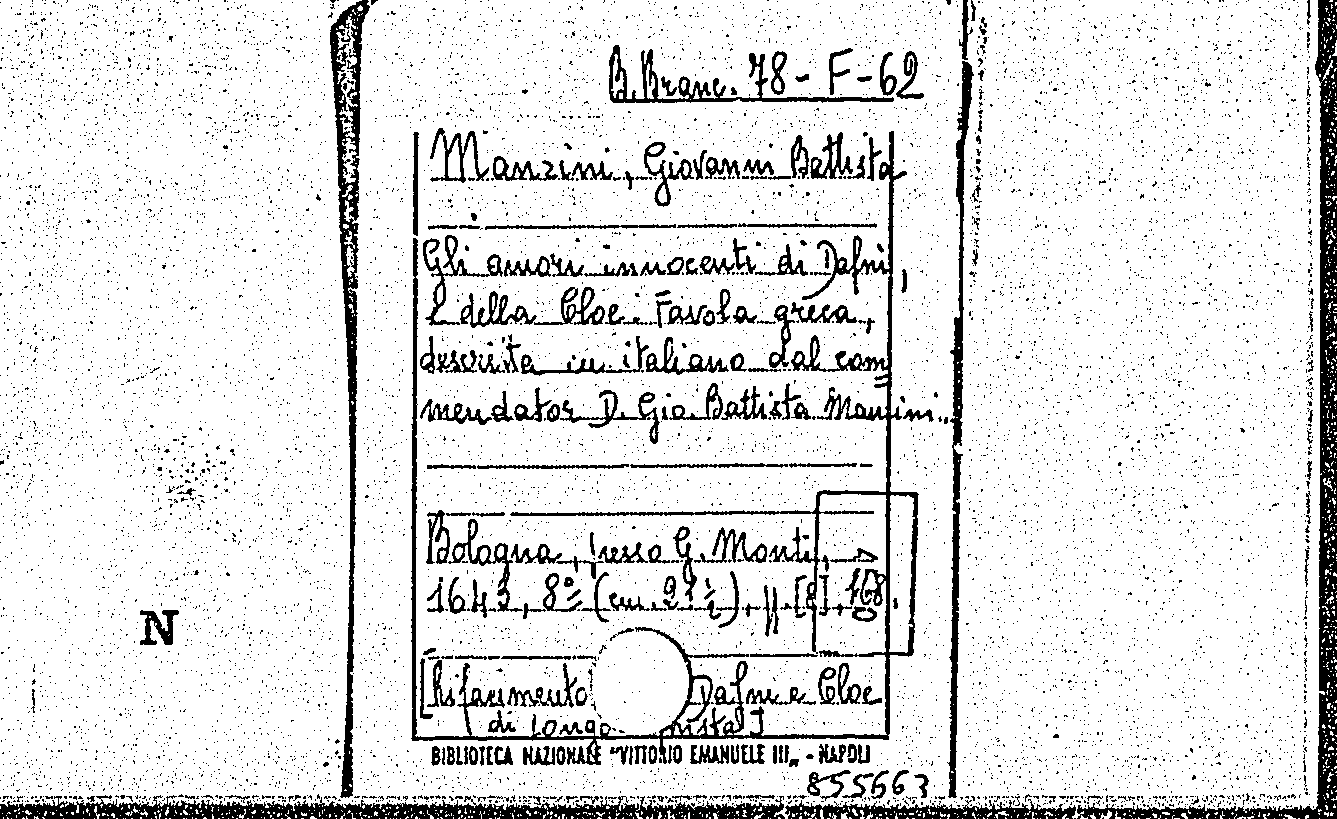 B. Branc. 78 - F - 62
Manzini, Giovanni Battista
Gli amori innocenti di Dafni,
e della Cloe. Favola greca,
descritta in italiano dal com=
mendator D. Gio. Battista Manzini.
Bologna, presso G. Monti,
1643, 8º (cm. 21 ½), pp. [8], 168.
N
[Rifacimento Dafni e Cloe
di Longo
BIBLIOTECA NAZIONALE "VITTORIO EMANUELE III„ - NAPOLI
855663